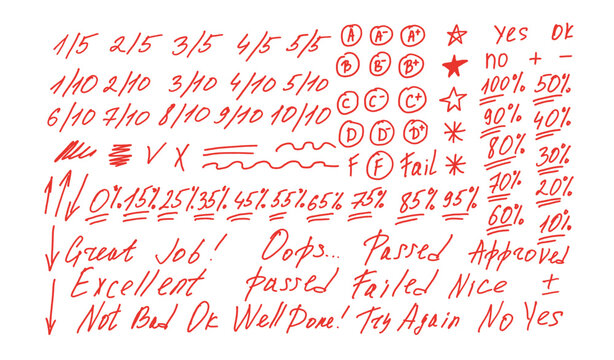 1/5 2/5 3/5 4/5 5/5 A A- A+ yes OK
B B- B+ no + -
1/10 2/10 3/10 4/10 5/10 100% 50%
6/10 7/10 8/10 9/10 10/10 C C- C+ 90% 40%
D D- D+ 80% 30%
V X F F Fail 70% 20%
0% 15% 25% 35% 45% 55% 65% 75% 85% 95% 60% 10%
Great Job! Oops... Passed Approved
Excellent passed Failed Nice ±
Not Bad Ok Well Done! Try Again No Yes